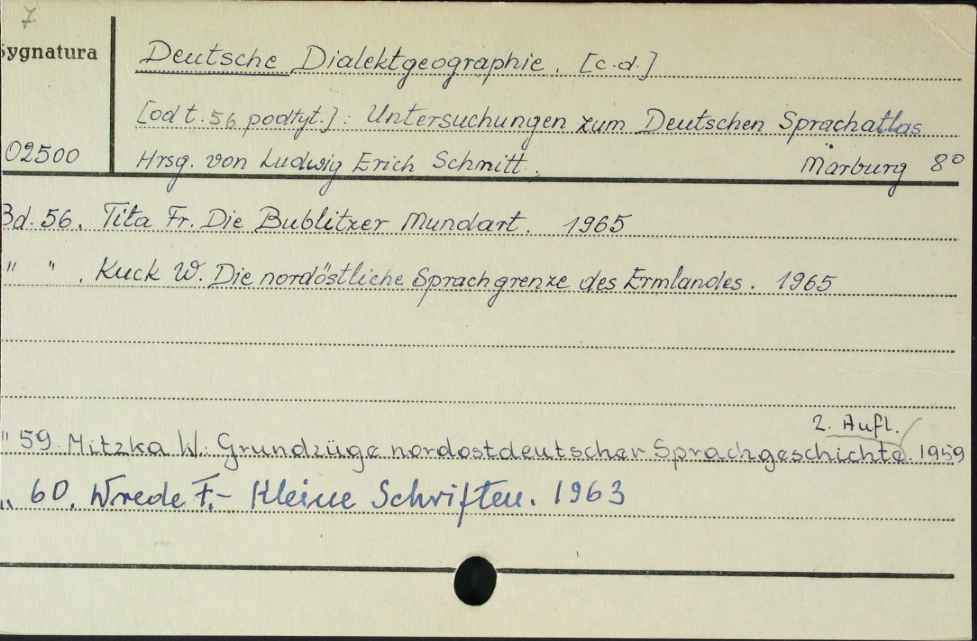 7
Sygnatura
Deutsche Dialektgeographie. [c.d.]
[od t. 56 podtyt.]: Untersuchungen zum Deutschen Sprachatlas
02500
Hrsg. von Ludwig Erich Schmitt. Marburg 8°
Bd. 56. Tita Fr. Die Bublitzer Mundart. 1965
" " . Kuck W. Die nordöstliche Sprachgrenze des Ermlandes. 1965
2. Aufl.
" 59 Mitzka W. Grundzüge nordostdeutscher Sprachgeschichte. 1959
„ 60. Wrede F.- Kleine Schriften. 1963